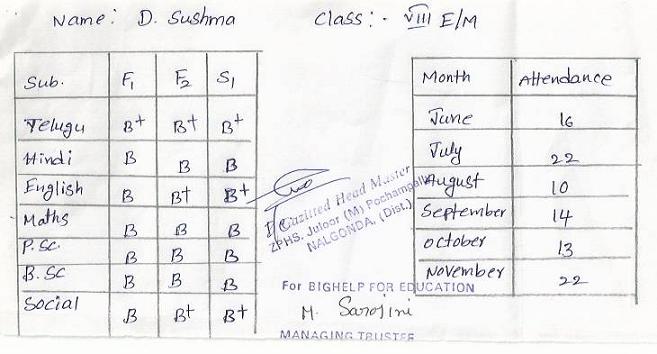 Name: D. Sushma Class:- VIII E/M
Sub. F1 F2 S1
Telugu B+ B+ B+
Hindi B B B
English B B+ B+
Maths B B B
P.Sc. B B B
B.Sc B B B
Social B B+ B+
Month Attendance
June 16
July 22
August 10
September 14
October 13
November 22
Gazitted Head Master
ZPHS, Juloor (M) Pochampally
NALGONDA, (Dist.)
For BIGHELP FOR EDUCATION
M. Sarojini
MANAGING TRUSTEE